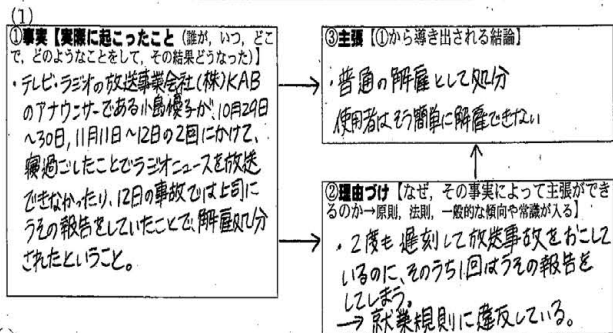 (1)
①事実【実際に起こったこと（誰が，いつ，どこ
で，どのようなことをして，その結果どうなった）】
・テレビ・ラジオの放送事業会社(株)KAB
のアナウンサーである小島優子が、10月29日
〜30日，11月11日〜12日の2回にかけて、
寝過ごしたことでラジオニュースを放送
できなかったり、12日の事故では上司に
うその報告をしていたことで、解雇処分
されたということ。
③主張【①から導き出される結論】
・普通の解雇として処分
使用者はそう簡単に解雇できない
②理由づけ【なぜ，その事実によって主張ができ
るのか→原則，法則，一般的な傾向や常識が入る】
・2度も遅刻して放送事故をおこして
いるのに、そのうち1回はうその報告を
してしまう。
→ 就業規則に違反している。